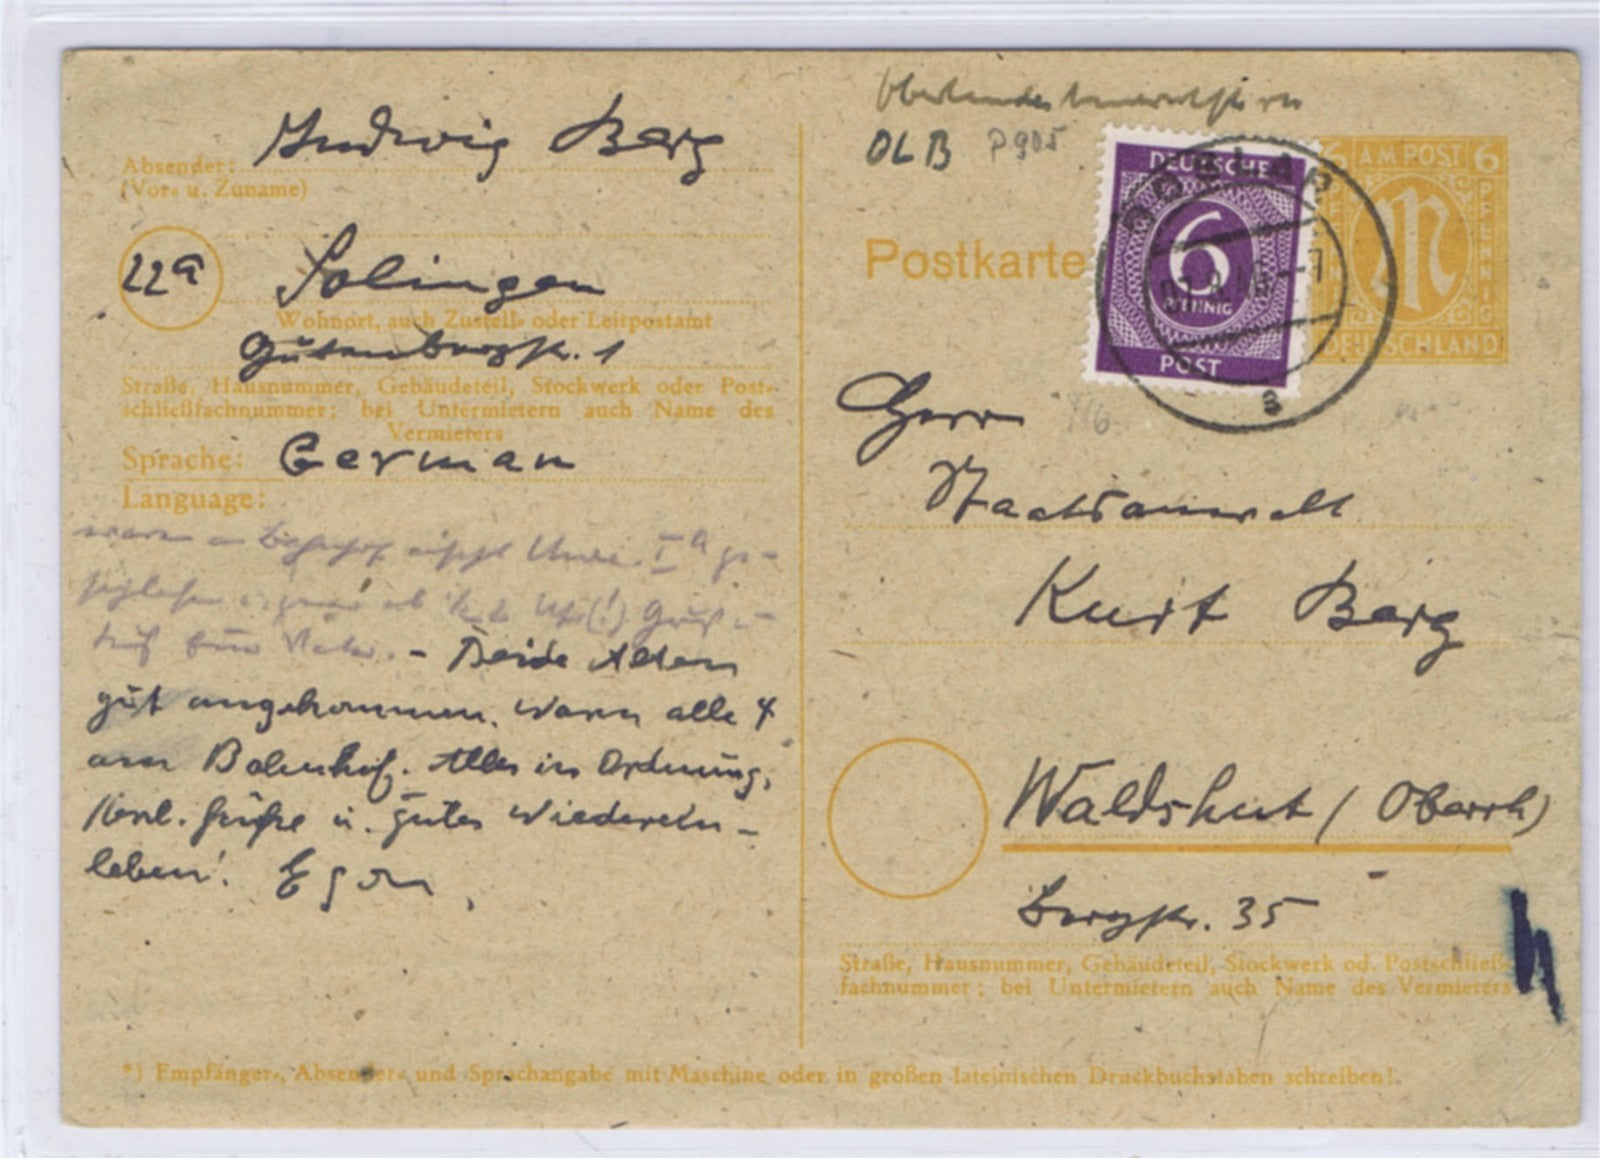 Absender: Ludwig Berg
(Vor- u. Zuname)
22a Solingen
Wohnort, auch Zustell- oder Leitpostamt
Gutenbergstr. 1
Straße, Hausnummer, Gebäudeteil, Stockwerk oder Post-
schließfachnummer; bei Untermietern auch Name des
Vermieters
Sprache: German
Language:
- Beide Alten
gut angekommen. Waren alle 4
am Bahnhof. Alles in Ordnung,
Herzl. Grüße u. gutes Wiederein-
leben! Egon,
OLB P905
Postkarte
DEUTSCHE
6
PFENNIG
POST
6 AM POST 6
PFENNIG
M
DEUTSCHLAND
GOSLAR
a
916
Herr
Staatsanwalt
Kurt Berg
Waldshut (Oberrh)
Bergstr. 35
Straße, Hausnummer, Gebäudeteil, Stockwerk od. Postschließ-
fachnummer; bei Untermietern auch Name des Vermieters
*) Empfänger-, Absender- und Sprachangabe mit Maschine oder in großen lateinischen Druckbuchstaben schreiben!